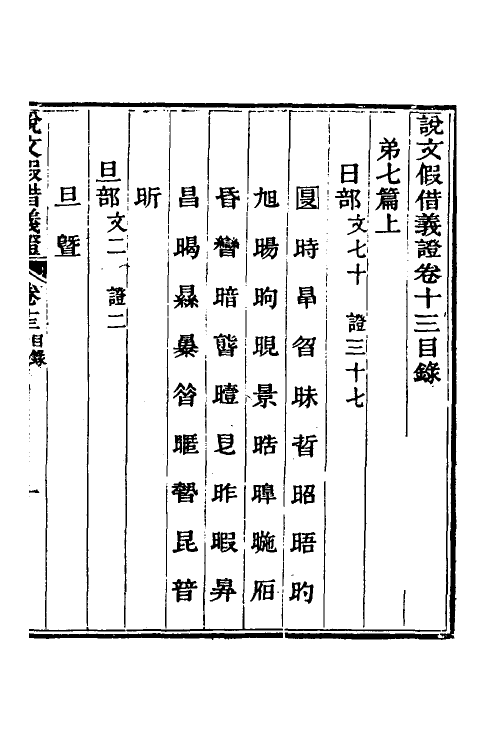 說文假借義證卷十三目錄
弟七篇上
日部文七十 證三十七
時早昒昧晢昭晤旳
旭暘昫晛景晧暤暆𣅳
昏㬫暗㬎曀㫐昨暇昪
昌暍曓晉暱暬昆普
昕
旦部文二 證二
旦暨
說文假借義證 卷十三目錄 一